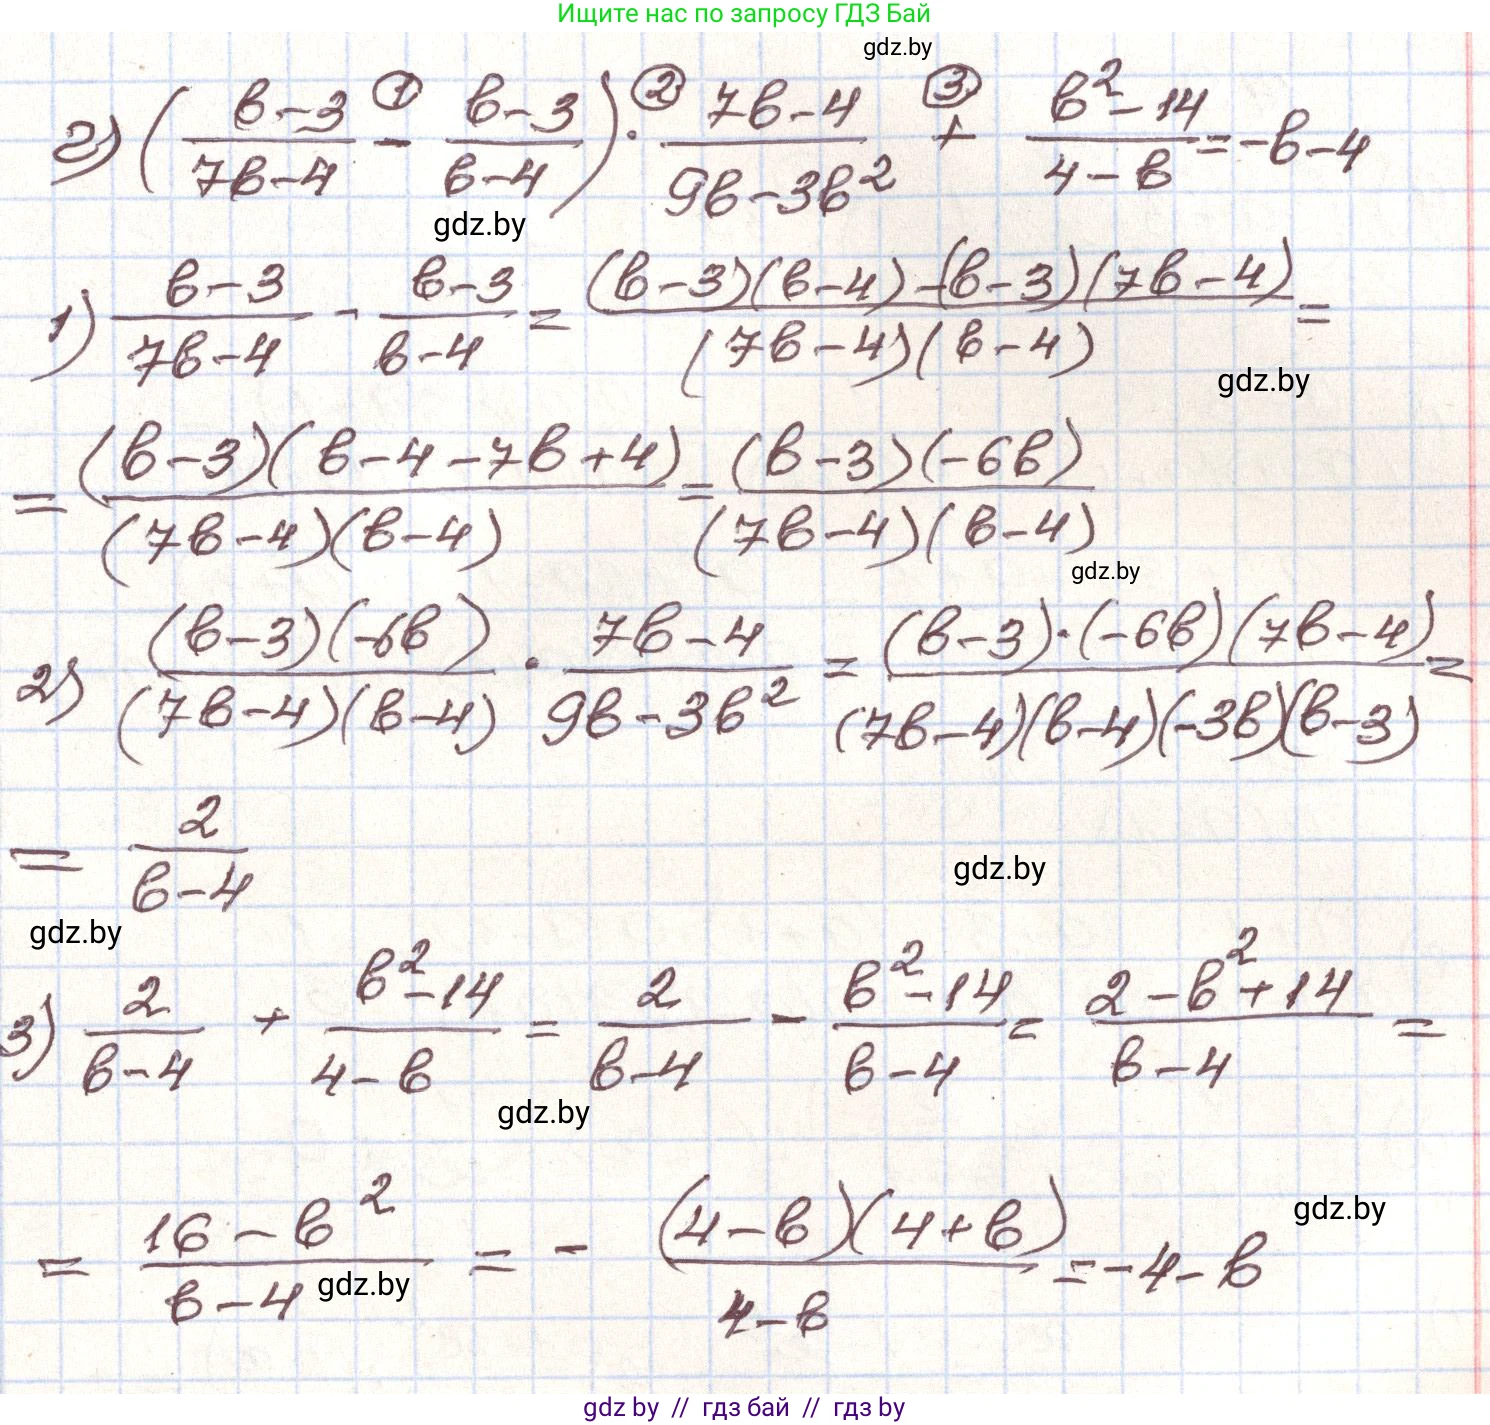 Ищите нас по запросу ГДЗ Бай
gdz.by
г) ( (в-3)/(7в-4) - (в-3)/(в-4) ) · (7в-4)/(9в-3в²) + (в²-14)/(4-в) = -в-4
① ② ③
gdz.by
1) (в-3)/(7в-4) - (в-3)/(в-4) = ((в-3)(в-4)-(в-3)(7в-4))/((7в-4)(в-4)) =
gdz.by
= ((в-3)(в-4-7в+4))/((7в-4)(в-4)) = ((в-3)(-6в))/((7в-4)(в-4))
gdz.by
2) ((в-3)(-6в))/((7в-4)(в-4)) · (7в-4)/(9в-3в²) = ((в-3)·(-6в)(7в-4))/((7в-4)(в-4)(-3в)(в-3)) =
= 2/(в-4)
gdz.by
gdz.by
3) 2/(в-4) + (в²-14)/(4-в) = 2/(в-4) - (в²-14)/(в-4) = (2-в²+14)/(в-4) =
gdz.by
= (16-в²)/(в-4) = - ((4-в)(4+в))/(4-в) = -4-в
gdz.by
gdz.by
gdz by // гдз бай // гдз by